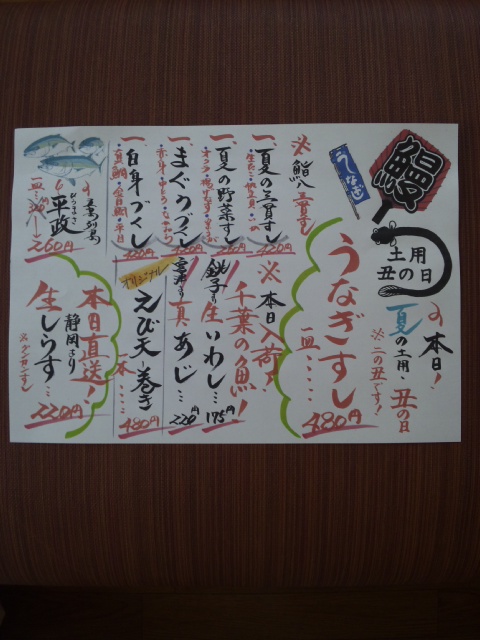 鰻
うなぎ
土用
丑の日
本日!
夏の土用・丑の日
※二の丑です!
うなぎすし
一皿・・・・・480円
※鮨八三貫すし
一、夏の三貫すし
一、夏の野菜すし
一、まぐろづくし
一、白身づくし
※本日入荷!
千葉の魚!
銚子の生いわし…175円
真あじ…220円
オリジナル
えび天巻き
一本…480円
五島列島
ひらまさ
平政
260円
本日直送!
静岡より
生しらす
※グンカンすし
…220円